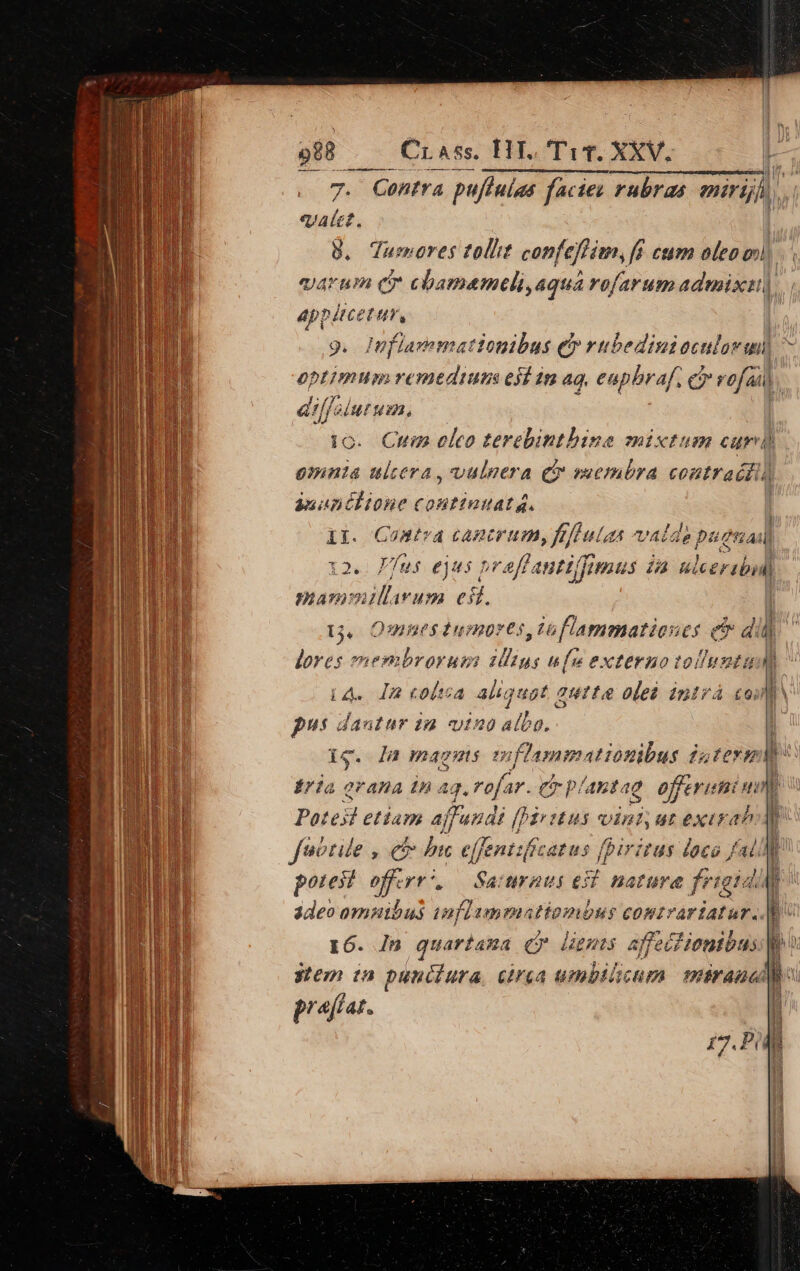 988 Class. III. Tit. XXV.
7. Contra pustulas faciei rubras mirifi
valet.
8. Tumores tollit confestim, si cum oleo o
varum & chamæmeli, aqua rosarum admixtu
applicetur.
9. Inflammationibus & rubedini oculorum
optimum remedium est in aq. euphras. & rosar
dissolutum.
10. Cum oleo terebinthinæ mixtum cur
omnia ulcera, vulnera & membra contracta
inunctione continuatâ.
11. Contra cancrum, fistulas valde pugna
12. Usus ejus præstantissimus in ulceribus
mammillarum est.
13. Omnes tumores, inflammationes & do
lores membrorum illius usu externo tolluntur
14. In colica aliquot guttæ olei intrà co
pus dantur in vino albo.
15. In magnis inflammationibus interna
tria grana in aq. rosar. & plantag. offerunt
Potest etiam affundi spiritus vini, ut extrah
subtile, & hic essentificatus spiritus loco sal
potest offerri. Saturnus est naturæ frigida
adeo omnibus inflammationibus contrariatur.
16. In quartana & lienis affectionibus
item in punctura circa umbilicum miranda
præstat.
17. P